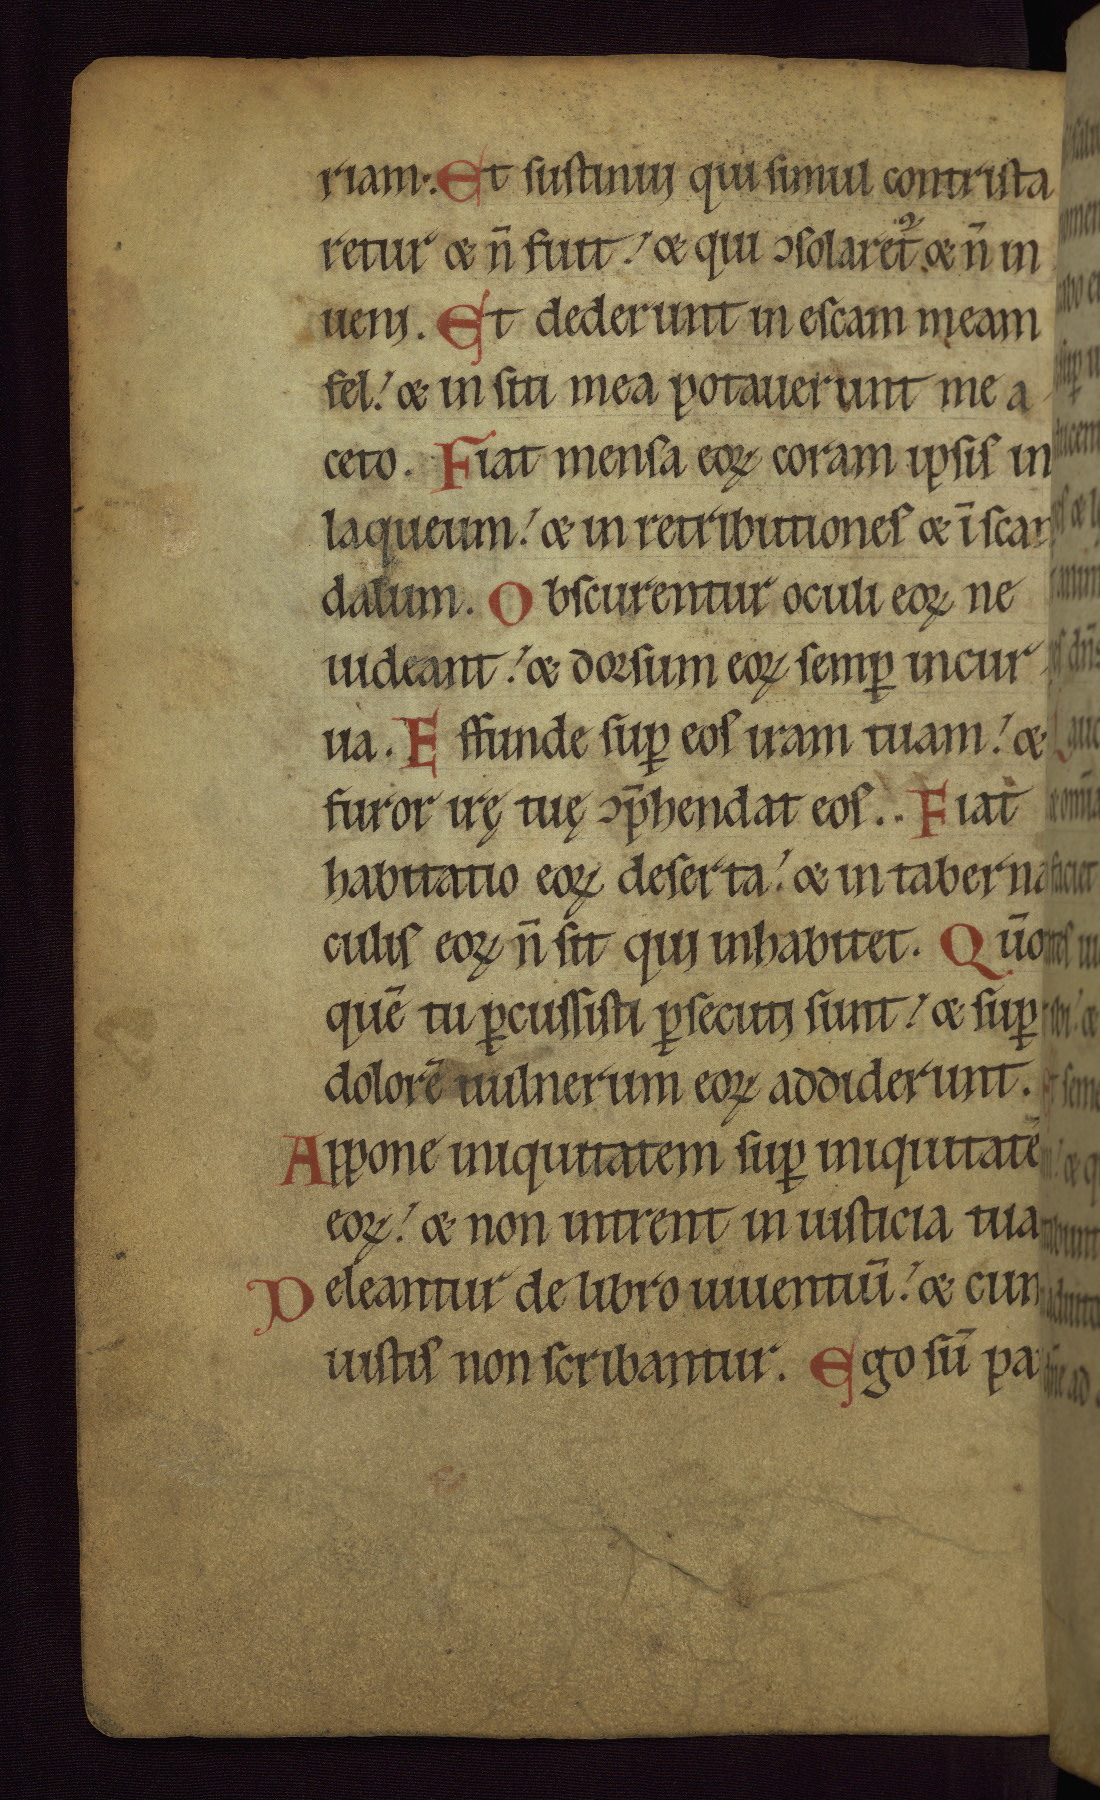 riam. Et sustinui qui simul contrista
retur & n̄ fuit! & qui ↄsolaret᷑ & n̄ in
ueni. Et dederunt in escam meam
fel! & in siti mea potauerunt me a
ceto. Fiat mensa eoꝝ coram ipsis in
laqueum! & in retributiones & ī scan
dalum. Obscurentur oculi eoꝝ ne
uideant! & dorsum eoꝝ semꝑ incur
ua. Effunde suꝑ eos iram tuam! &
furor irę tuę ↄp̄hendat eos. Fiat
habitatio eoꝝ deserta! & in taberna
culis eoꝝ n̄ sit qui inhabitet. Qūo
quē tu ꝑcussisti ꝑsecuti sunt! & suꝑ
dolorē uulnerum eoꝝ addiderunt.
Appone iniquitatem suꝑ iniquitatē
eoꝝ! & non intrent in iusticia tua
Deleantur de libro uiuentiū! & cum
iustis non scribantur. Ego sū pa